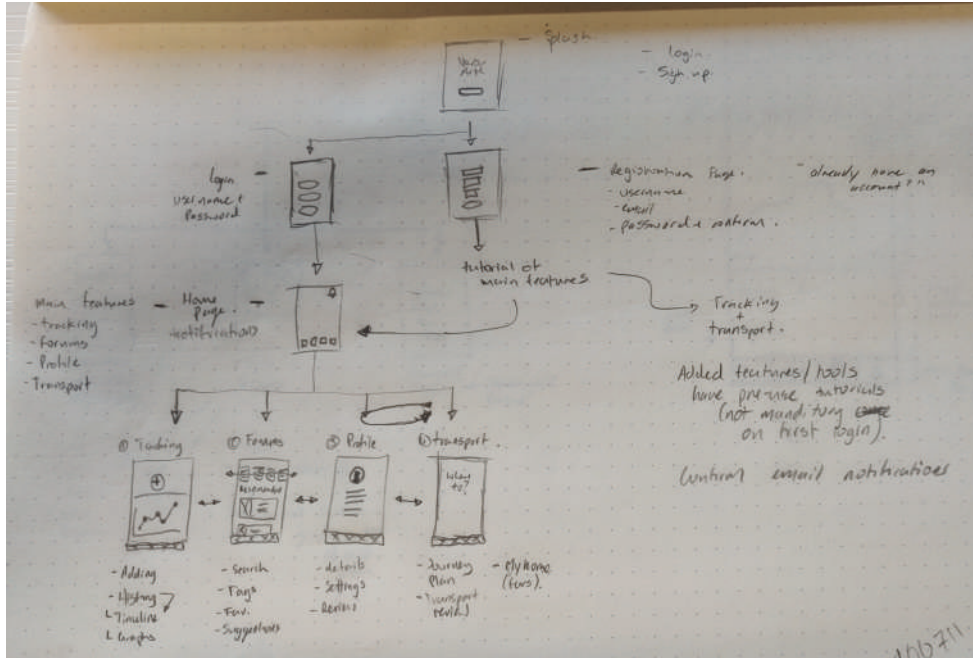 - Splash
- login
- Sign up.
login -
username +
password
- Registration Page.
- username
- email
- password + confirm.
- already have an
account
tutorial of
main features
Tracking
+
transport.
main features -
- tracking
- Forums
- Profile
- Transport
Home -
page.
notifications
Added features/tools
have pre-use tutorials
(not manditory
on first login).
Confirm email notifications
① Tracking
Forums
Profile
transport.
- Adding
- History
Timeline
Graphs
- Search
- Tags
- Fav.
- Suggestions
- details
- Settings
- Review
- Journey
Plan
- Transport